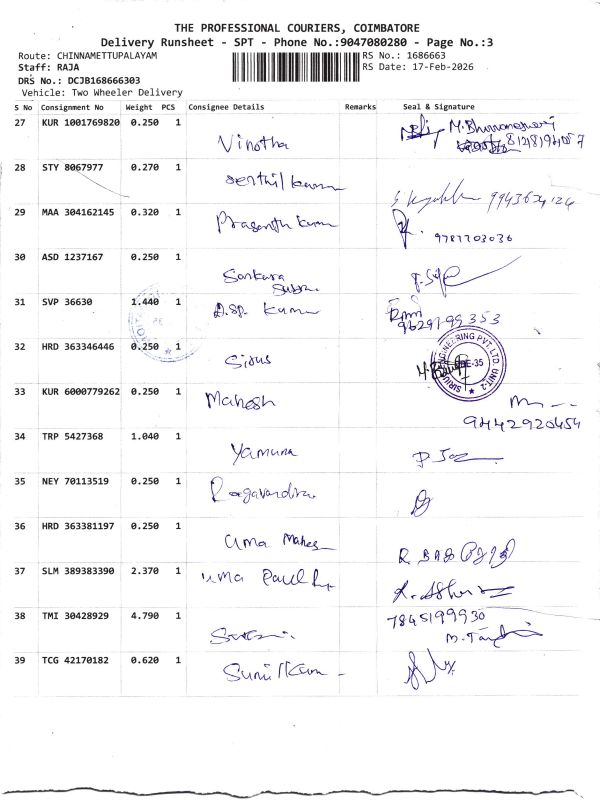 THE PROFESSIONAL COURIERS, COIMBATORE
Delivery Runsheet - SPT - Phone No.:9047080280 - Page No.:3
Route: CHINNAMETTUPALAYAM RS No.: 1686663
Staff: RAJA RS Date: 17-Feb-2026
DRS No.: DCJB168666303
Vehicle: Two Wheeler Delivery
S No Consignment No Weight PCS Consignee Details Remarks Seal & Signature
27 KUR 1001769820 0.250 1
Vinotha
28 STY 8067977 0.270 1
Senthil kumar
29 MAA 304162145 0.320 1
Prasanth Kumar
9787703036
30 ASD 1237167 0.250 1
Sankara
Subra.
31 SVP 36630 1.440 1
D.SP. Kumar
96297-99353
32 HRD 363346446 0.250 1
Sirus
ENGINEERING PVT. LTD. UNIT-2
33 KUR 6000779262 0.250 1
Mahesh
9442920454
34 TRP 5427368 1.040 1
Yamuna
35 NEY 70113519 0.250 1
Ragavandira
36 HRD 363381197 0.250 1
Uma Mahes
37 SLM 389383390 2.370 1
uma
38 TMI 30428929 4.790 1
7845199930
39 TCG 42170182 0.620 1
Sunil Kum